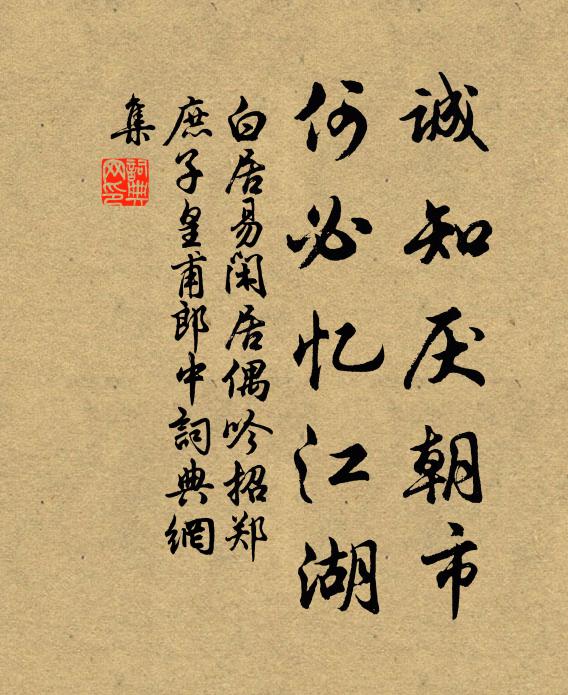 诚知厌朝市
何必忆江湖
白居易闲居偶吟招郑
庶子皇甫郎中詞典網
集
詞典
网印